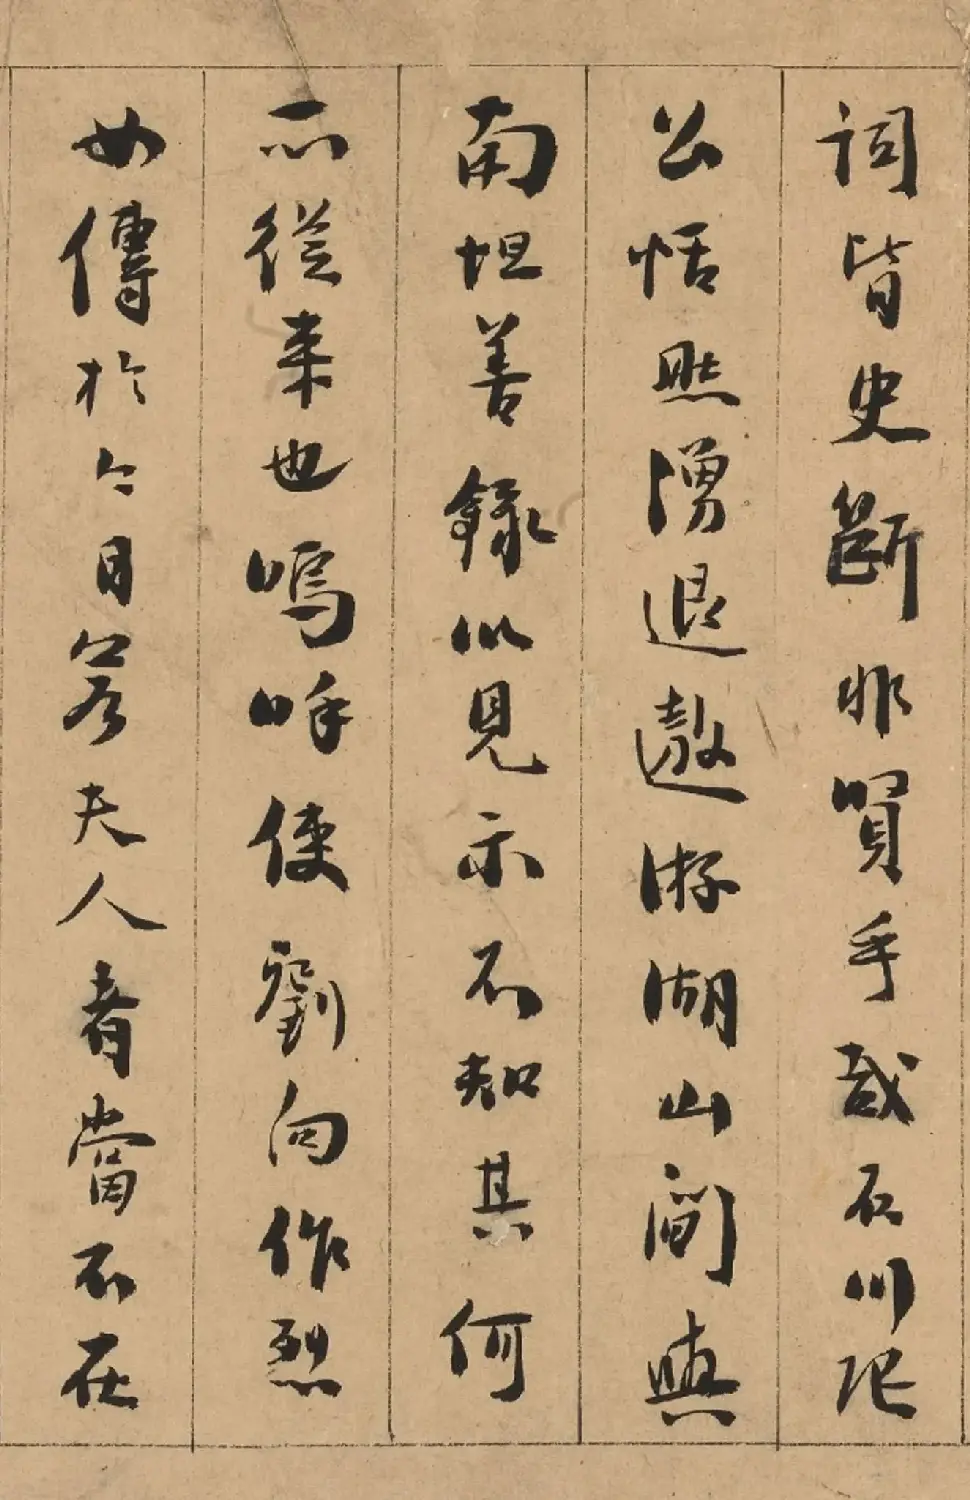 詞皆史斷非賢乎哉石川張
公恬然勇退遨游湖山間與
南坦善錄以見示不知其何
所從来也嗚呼使劉向作烈
女傳於今日若夫人者當不在